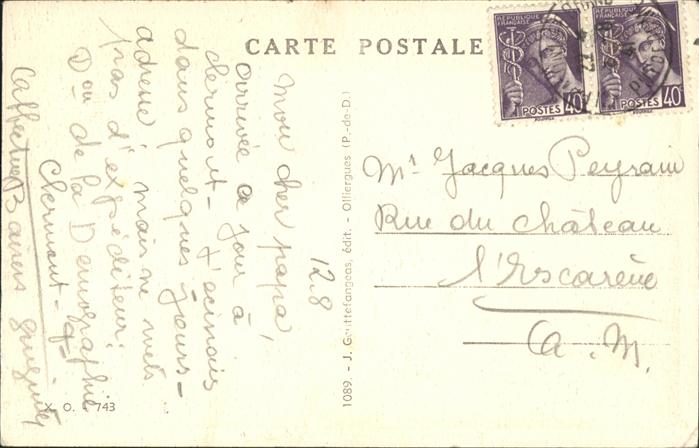 CARTE POSTALE
RÉPUBLIQUE FRANÇAISE
POSTES 40
RÉPUBLIQUE FRANÇAISE
POSTES 40
12.8
Mon cher papa,
arrivée ce jour à
Clermont - t'écrirais
dans quelques jours -
adresse, mais ne mets
pas d'expéditeur:
Don de la Démographie
Clermont-Fd
Baisers
1089. - J. Gouttefangeas, édit. - Olliergues (P.-de-D.)
Mr Jacques Peyrani
Rue du Château
l'Escarène
A. M.
X. O. 743